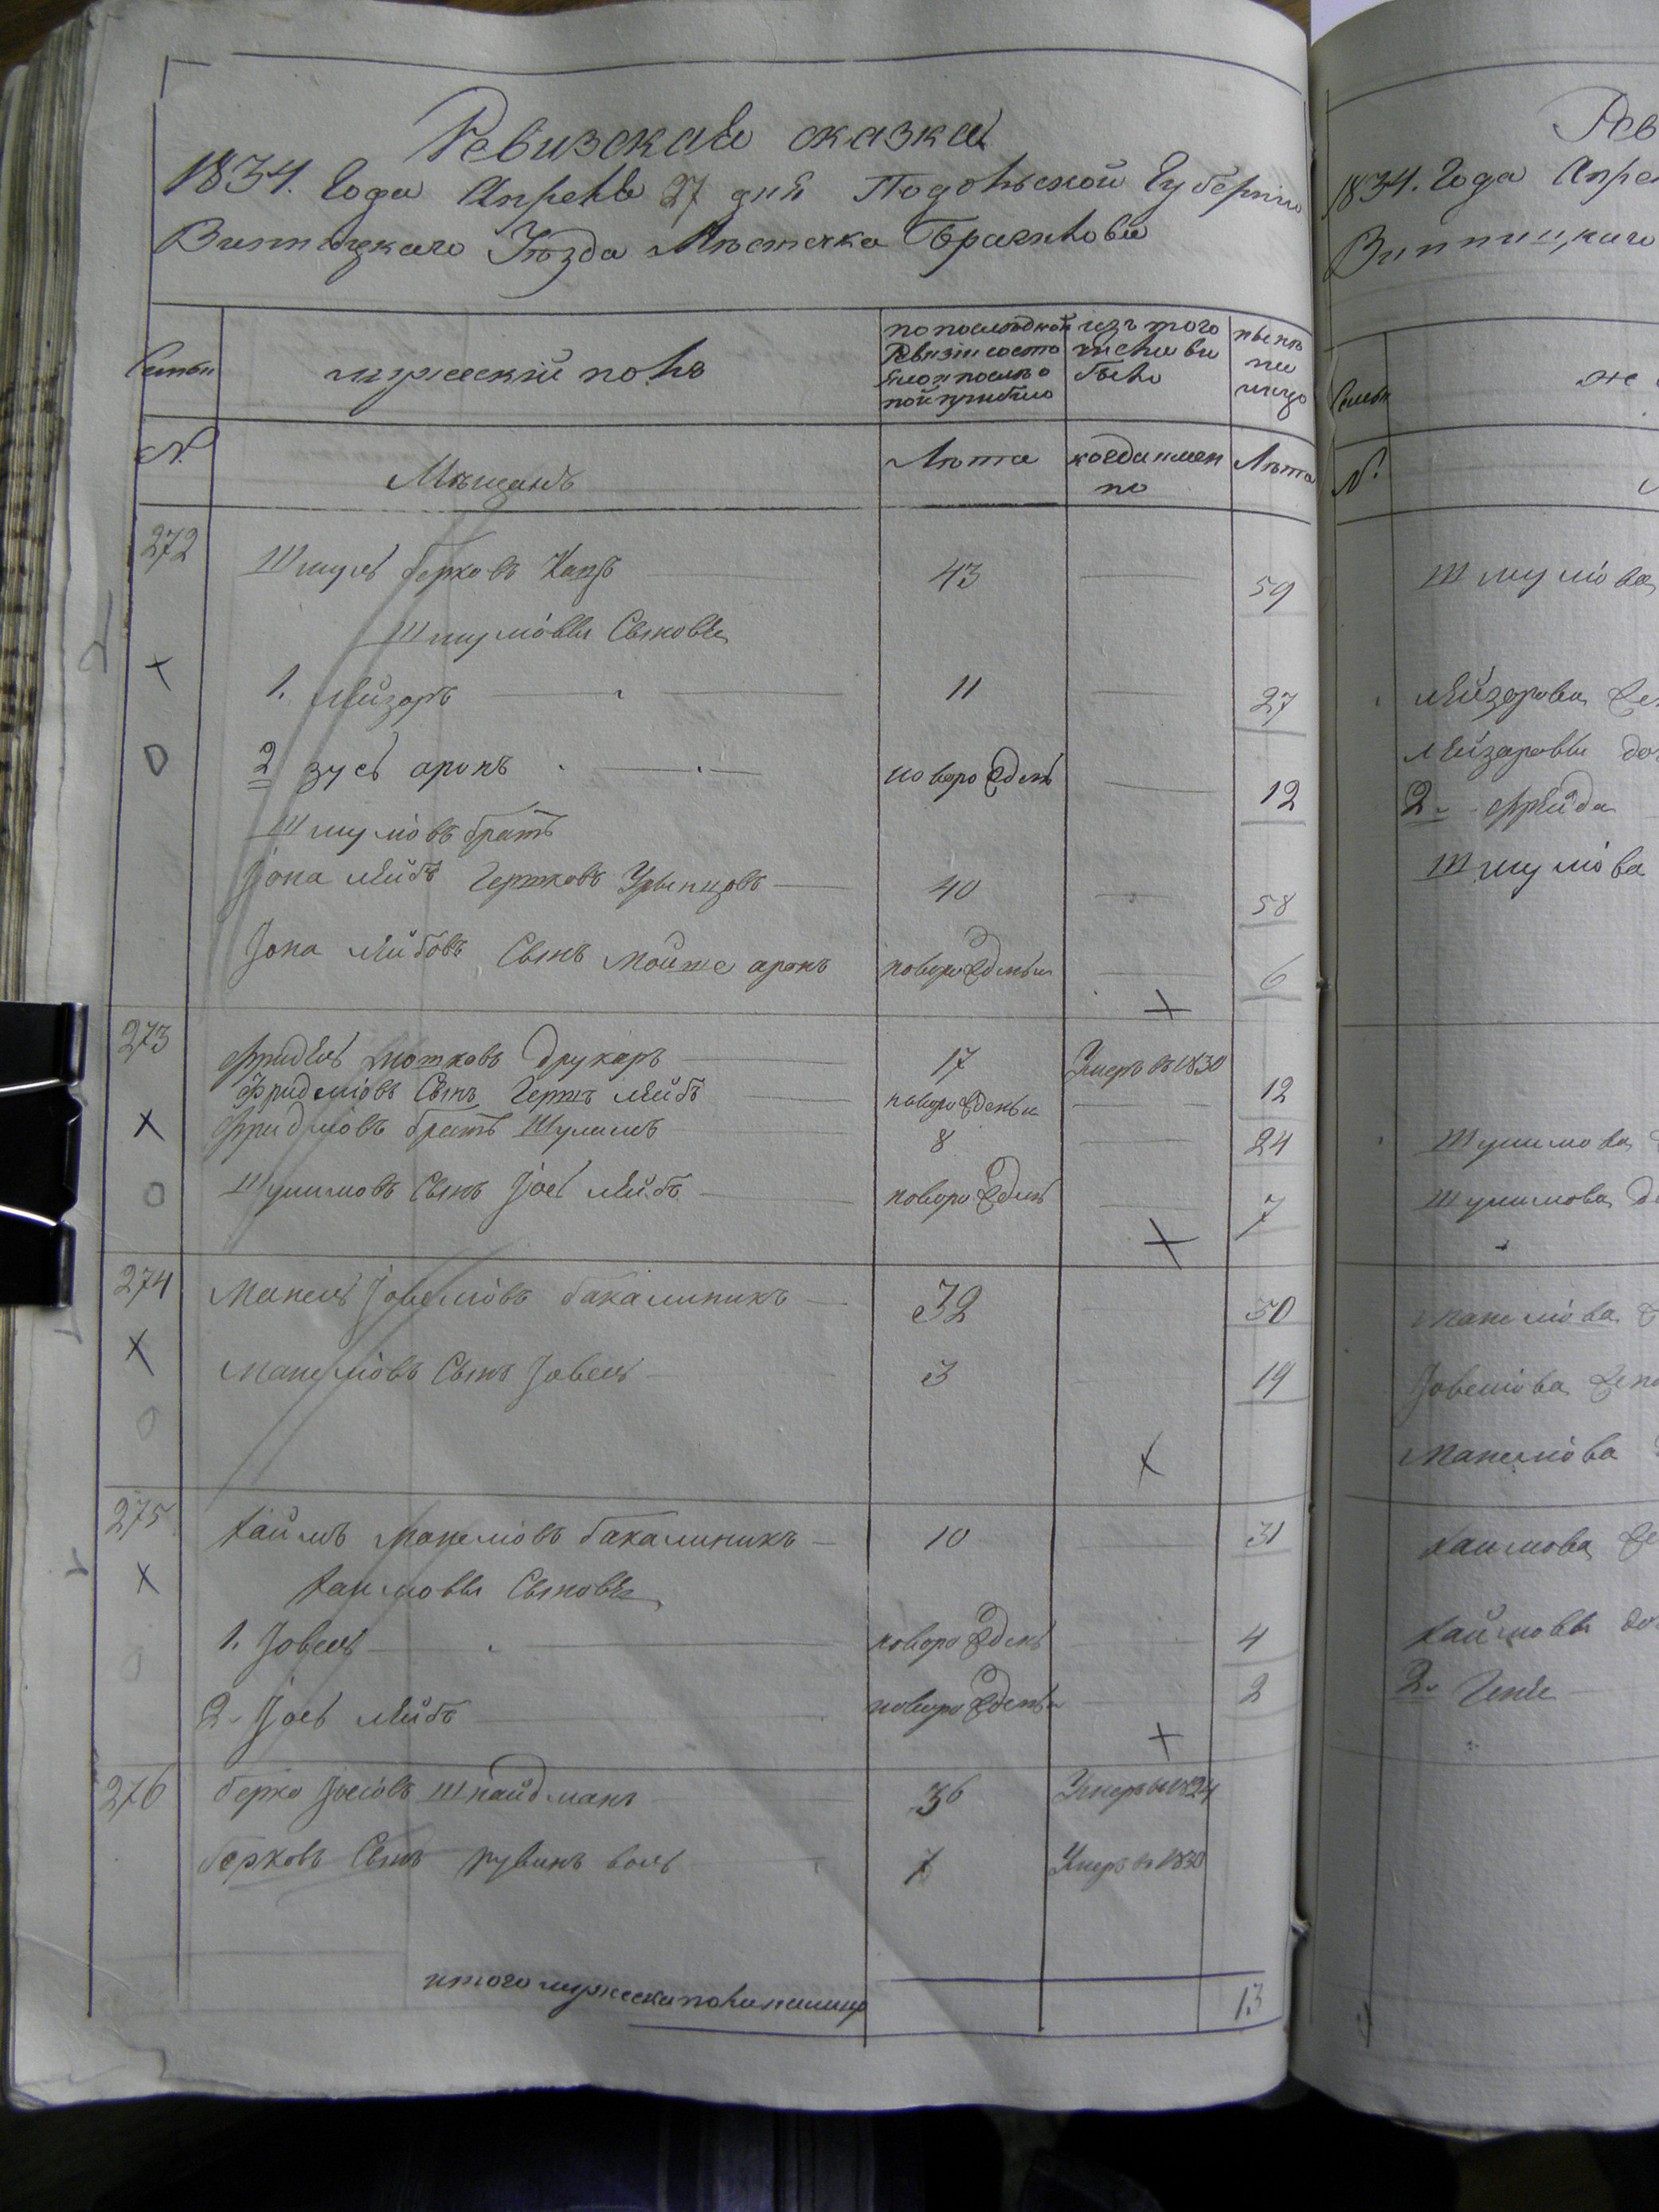 Ревизская сказка
1834. Года Апреля 27 дня Подольской Губернии
Винницкаго Уѣзда Мѣстечка Браилова
Семьи
мужеский полъ
по последной
Ревизіи состо
яло и после о
ной прибыло
изъ того
числа вы
было
нынѣ
на
лицо
№
Мѣщанъ
Лѣта
когда имен
но
Лѣта
272
Шмуль Берковъ Кацъ 43 59
Шмулiовы Сыновья
1. Лейзоръ 11 27
2 Зусь аронъ новорожденъ 12
Шмулiовъ братъ
Iона Лейбъ Гершковъ 40 58
Iона Лейбовъ Сынъ Мойше аронъ новорожденъ 6
273
Фридель Мошковъ Друкаръ 17 Умеръ въ 1830
Фриделiовъ Сынъ Гершъ Лейбъ новорожденъ 12
Фридлiовъ братъ Шулимъ 8 24
Шулимовъ Сынъ Iось Лейбъ новорожденъ 7
274
Манель Iовелiовъ бакалиникъ 32 50
Манелiовъ Сынъ Iовель 3 19
275
Хаимъ Манелiовъ бакалиникъ 10 31
Хаимовы Сыновья
1. Iовель новорожденъ 4
2. Iось Лейбъ новорожденъ 2
276
Берко Iосiовъ Шнайдманъ 36 Умеръ въ 1824
Берковъ Сынъ рувинъ волъ 7 Умеръ въ 1830
итого мужеска пола на лицо 13
Рев
1834. Года Апре
Винницкаго
Семьи
же
№
Шмулiова
Лейзорова
Лейзоровы до
2. Фрейда
Шмулiова
Шулимова
Шулимова до
Манелiова
Iовелiова жена
Манелiова
Хаимова же
Хаимовы до
2. Геня